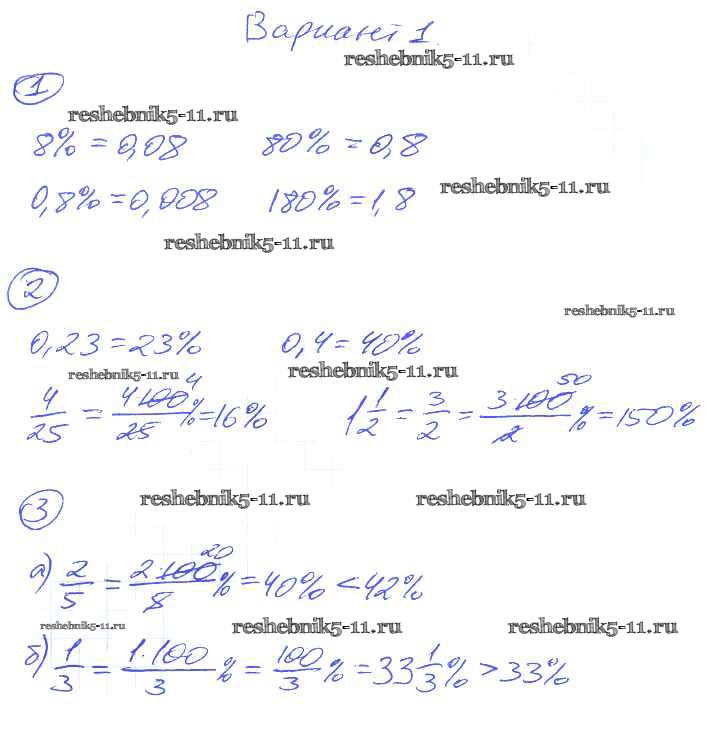 Вариант 1
reshebnik5-11.ru
1
reshebnik5-11.ru
8% = 0,08 80% = 0,8
reshebnik5-11.ru
0,8% = 0,008 180% = 1,8
reshebnik5-11.ru
2
reshebnik5-11.ru
0,23 = 23% 0,4 = 40%
reshebnik5-11.ru reshebnik5-11.ru
4/25 = 4·100/25 % = 16% 1 1/2 = 3/2 = 3·100/2 % = 150%
4 50
3
reshebnik5-11.ru reshebnik5-11.ru
20
а) 2/5 = 2·100/8 % = 40% < 42%
reshebnik5-11.ru reshebnik5-11.ru reshebnik5-11.ru
б) 1/3 = 1·100/3 % = 100/3 % = 33 1/3 % > 33%